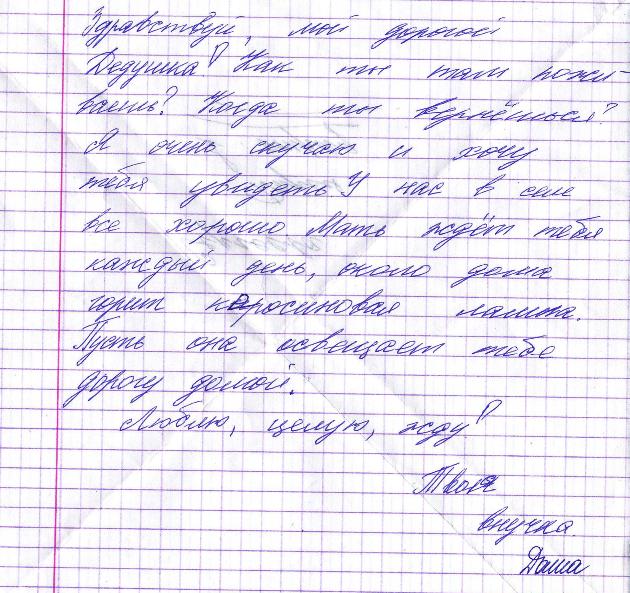 Здравствуй, мой дорогой
Дедушка! Как ты там пожи-
ваешь? Когда ты вернёшься?
Я очень скучаю и хочу
тебя увидеть У нас в селе
все хорошо Мать ждёт тебя
каждый день, около дома
горит каросиновая лампа.
Пусть она освещает тебе
дорогу домой.
Люблю, целую, жду!
Твоя
внучка.
Даша